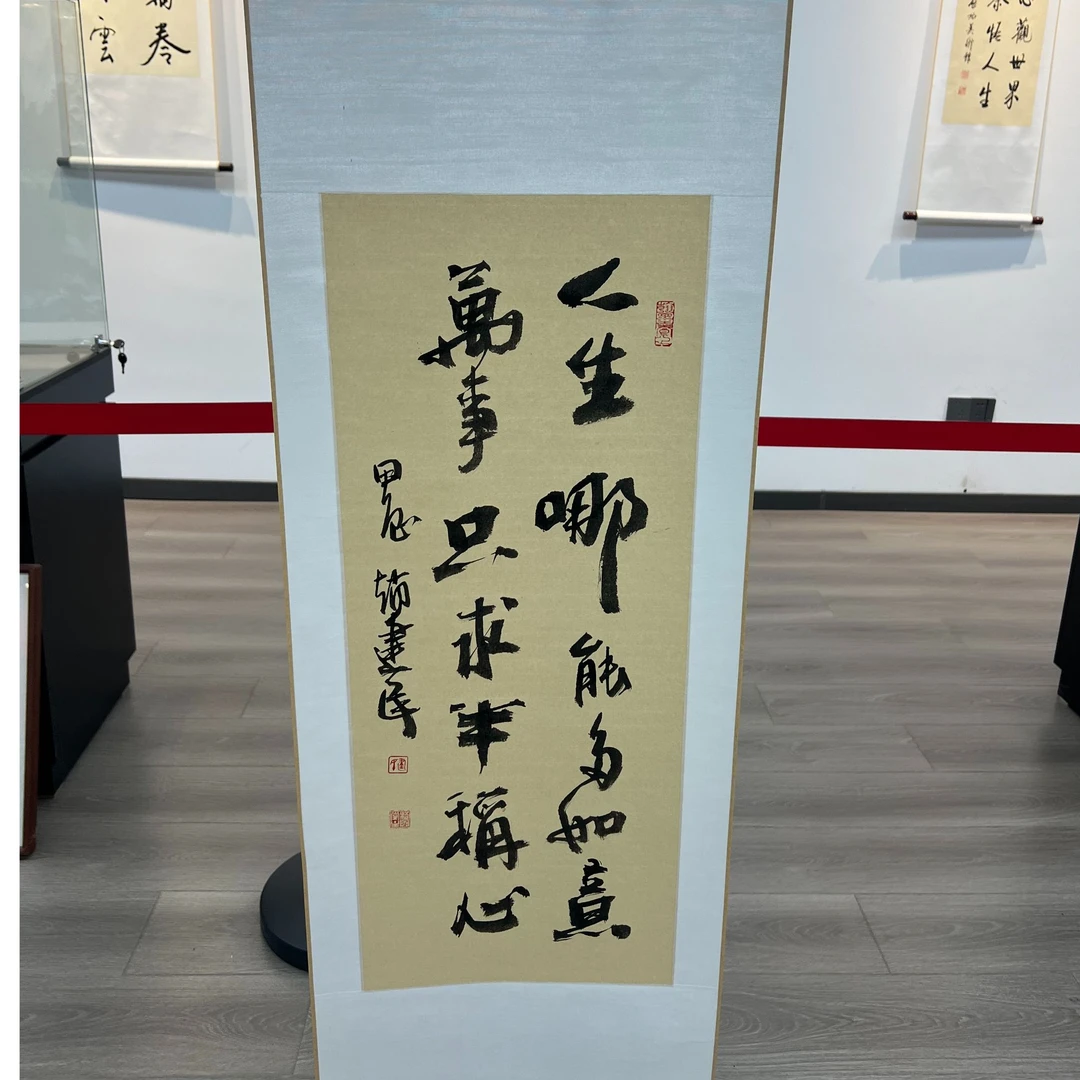 人生哪能多如意
萬事只求半稱心
甲辰 趙建民
觀世界
悟人生
雲